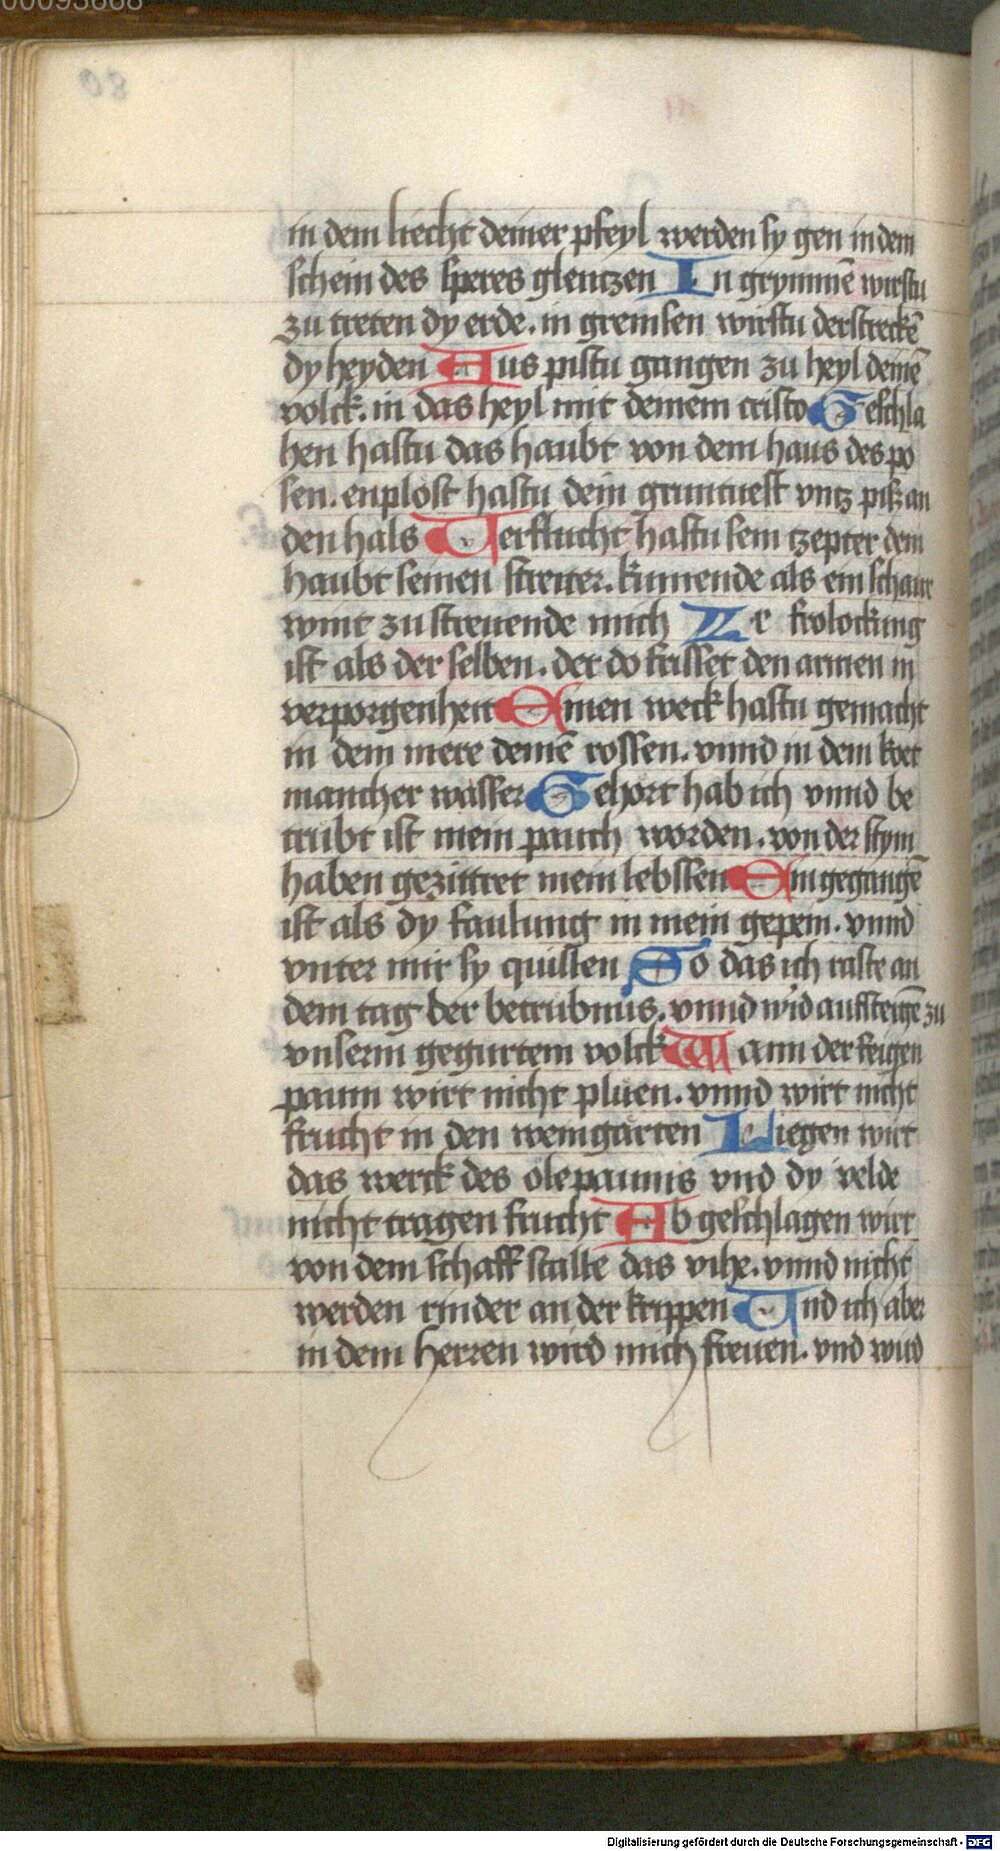 00093668
in dem liecht deiner pfeyl werden sy gen in dem
schein des speres glentzen In grymmē wirstu
zu treten dy erde. in gremsen wirstu derstreckē
dy heyden Aus pistu gangen zu heyl deinē
volck. in das heyl mit deinem cristo Geschla
hen hastu das haubt von dem haus des po
sen. enplost hastu dein gruntuest vntz pisz an
den hals Verflucht hastu sein tzepter dem
haubt seinen streiter. kumende als ein schaur
wint zu streuende mich Er frolockung
ist als der selben. der do frisset den armen in
verporgenheit Einen weck hastu gemacht
in dem mere deinē rossen. vnnd in dem koet
mancher wasser Gehort hab ich vnnd be
trubt ist mein pauch worden. von der stym
haben gezittret mein lebssen Ein gegangē
ist als dy faulung in mein gepein. vnnd
vnter mir sy quillen So das ich raste an
dem tag der betrubnus. vnnd wid aufsteigē zu
vnserm gegurtem volck Wann der feigen
paum wirt nicht pluen. vnnd wirt nicht
frucht in den weingarten Liegen wirt
das werck des olepaums vnd dy velde
nicht tragen frucht Ab geschlagen wirt
von dem schaff stalle das vihe. vnnd nicht
werden rinder an der krippen Vnd ich aber
in dem herren wird mich freuen. vnd wird
Digitalisierung gefördert durch die Deutsche Forschungsgemeinschaft - DFG